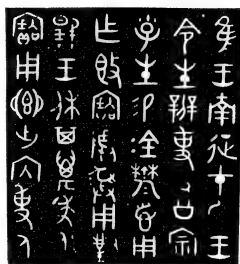 隹王南征才王
令生辨事公宗
小子生易金鬱鬯用
乍簋寶尊彝用對
揚王休其萬年永
寶用鄉出內事人